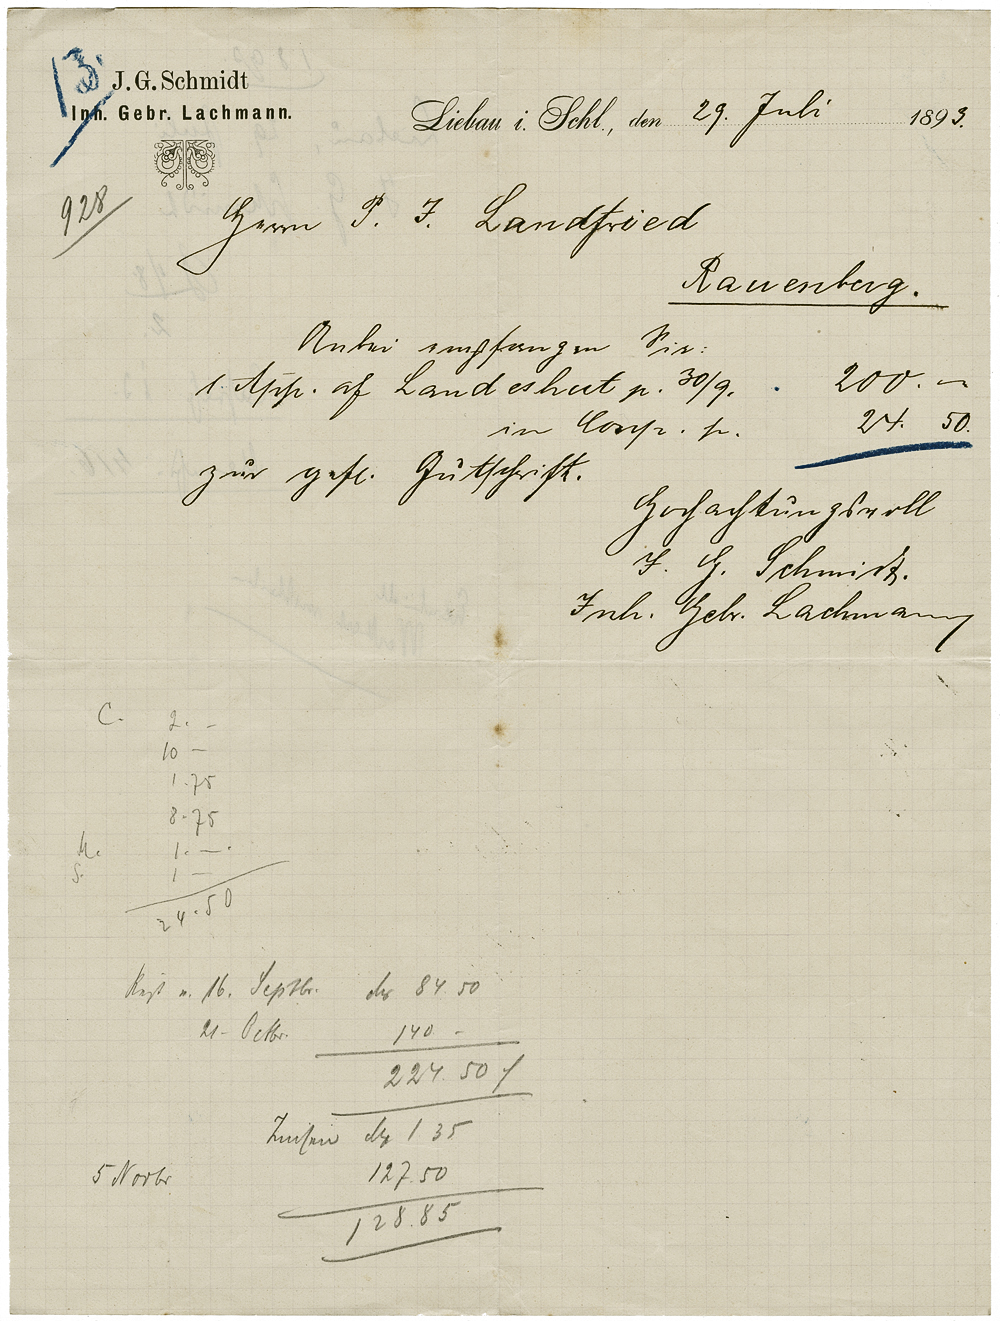 13.
J. G. Schmidt
Inh. Gebr. Lachmann.
Liebau i. Schl., den 29. Juli 1893.
928
Herrn P. J. Landfried
Rauenberg.
Anbei empfangen Sie:
1. App. af Landeshut p. 30/9. 200. —
in Coup. p. 24. 50.
zur gefl. Gutschrift.
Hochachtungsvoll
J. G. Schmidt.
Inh. Gebr. Lachmann
C. 2. —
10 —
1.75
8.75
M. 1. —.
S. 1 —
24.50
16. Septbr. 84.50
21 — Octbr. 140 —
224.50
Zinsen 1 35
5 Novbr 127.50
128.85